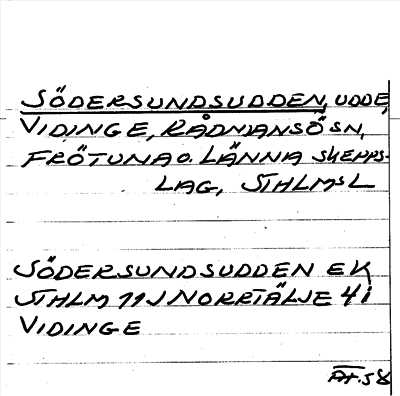 SÖDERSUNDSUDDEN, UDDE,
VIDINGE, RÅDMANSÖ SN,
FRÖTUNA O. LÄNNA SKEPPS-
LAG, STHLMS L
SÖDERSUNDSUDDEN EK
STHLM 11J NORRTÄLJE 4 i
VIDINGE